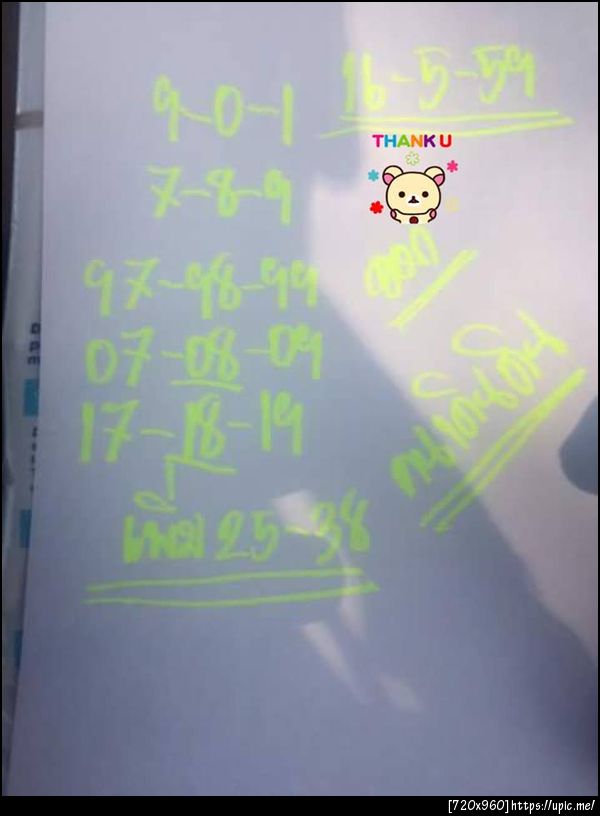 9-0-1
16-5-59
THANK U
7-8-9
97-98-99
07-08-09
17-18-19
เพิ่ม 25-38
[720x960]https://upic.me/